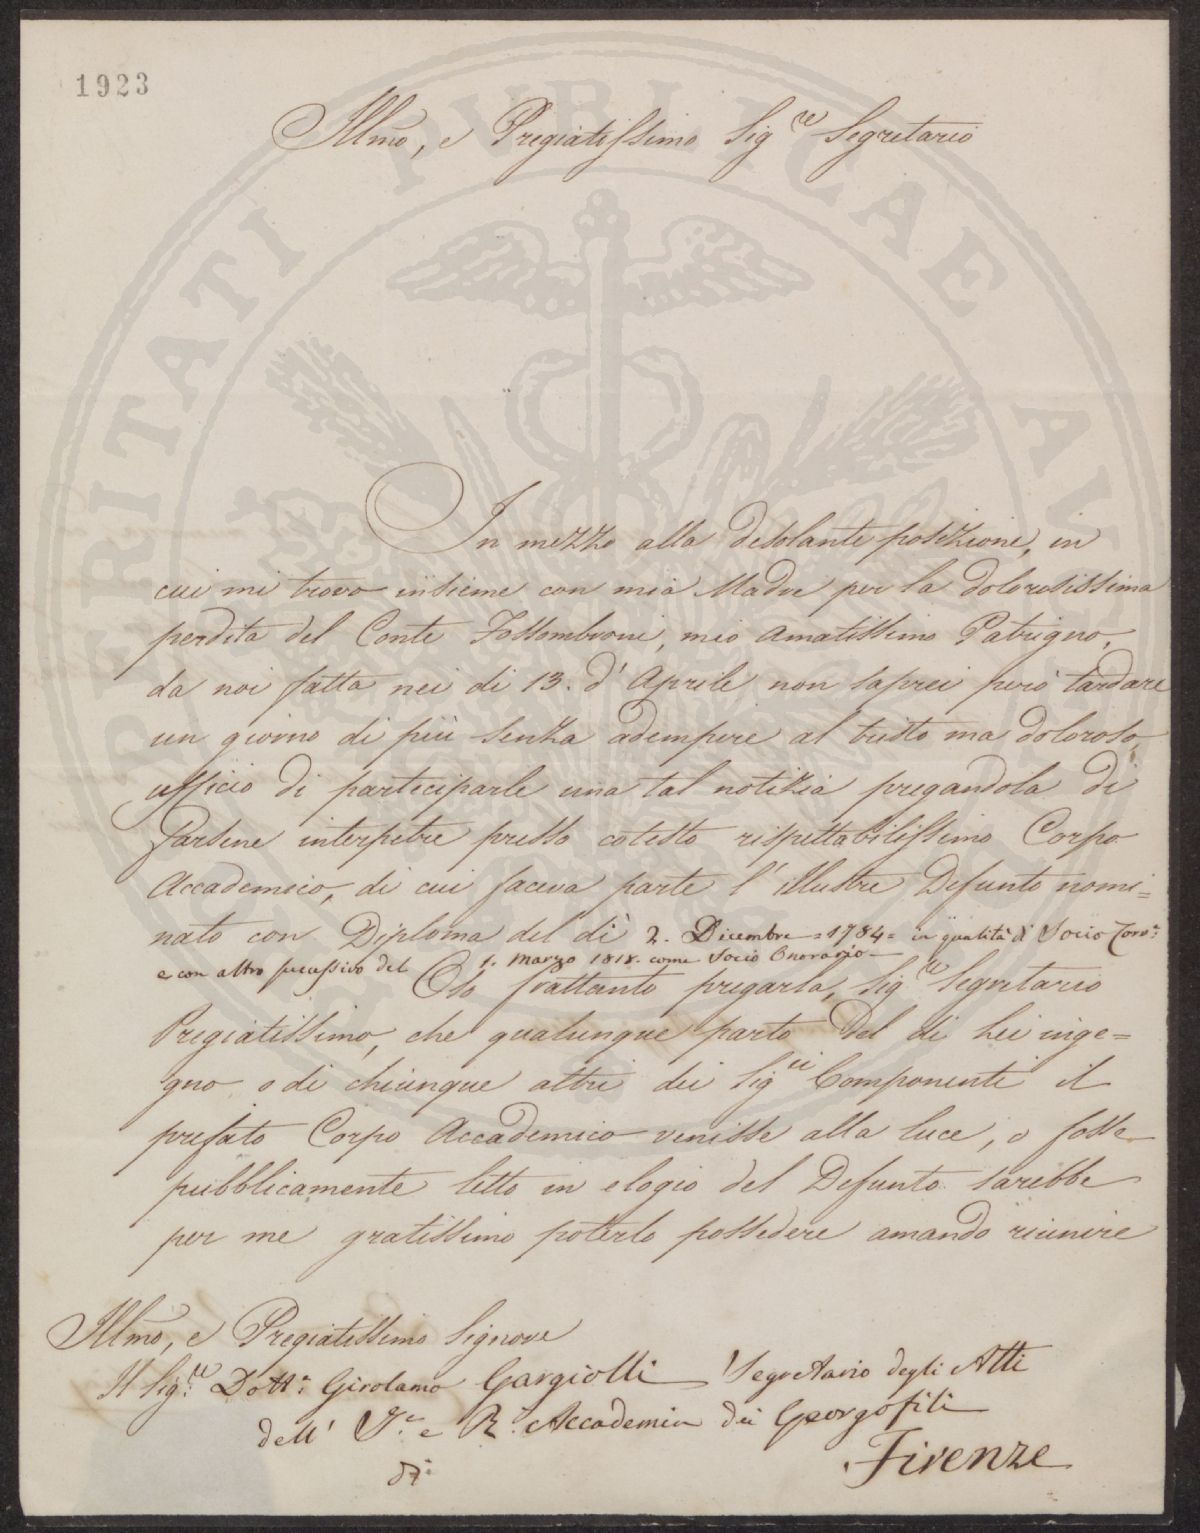 1923
Illmo, e Pregiatissimo Sig.re Segretario
In mezzo alla desolante posizione, in
cui mi trovo insieme con mia Madre per la dolorosissima
perdita del Conte Fossombroni, mio amatissimo Patrigno,
da noi fatta nei di 13. d' Aprile non saprei però tardare
un giorno di più senza adempire al tristo ma doloroso
ufficio di participarle una tal notizia pregandola di
farsene interpetre presso cotesto rispettabilissimo Corpo
Accademico, di cui faceva parte l' illustre Defunto nomi=
nato con Diploma del dì 2. Dicembre =1784= in qualità di Socio Corr.e
e con altro successivo del 1. Marzo 1818. come Socio Onorario
Oso frattanto pregarla, Sig.re Segretario
Pregiatissimo, che qualunque parto del di Lei inge=
gno o di chiunque altri dei Sig.ri Componenti il
prefato Corpo Accademico venisse alla luce, o fosse
pubblicamente letto in elogio del Defunto sarebbe
per me gratissimo poterlo possedere amando riunire
Illmo, e Pregiatissimo Signore
Il Sig.re Dott.e Girolamo Gargiolli Segretario degli Atti
dell' I. e R. Accademia dei Georgofili
Firenze
PERITATI PVBLICAE AV